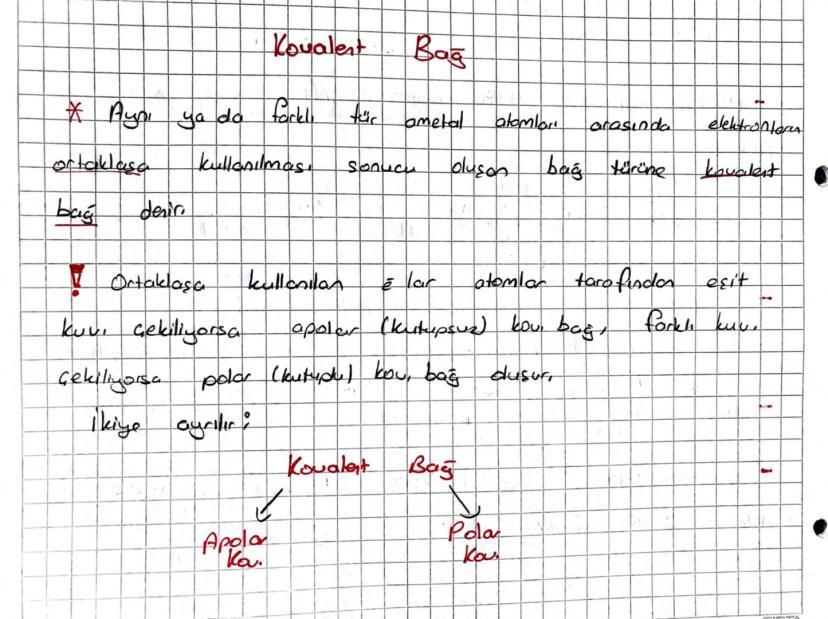 Kovalent Bağ
* Aynı ya da farklı tür ametal atomları arasında elektronların
ortaklaşa kullanılması sonucu oluşan bağ türüne kovalent
bağ denir.
! Ortaklaşa kullanılan ē lar atomlar tarafından eşit
kuv. çekiliyorsa apolar (kutupsuz) kov. bağ, farklı kuv.
çekiliyorsa polar (kutuplu) kov. bağ oluşur.
İkiye ayrılır:
Kovalent Bağ
Apolar Polar
Kov. Kov.